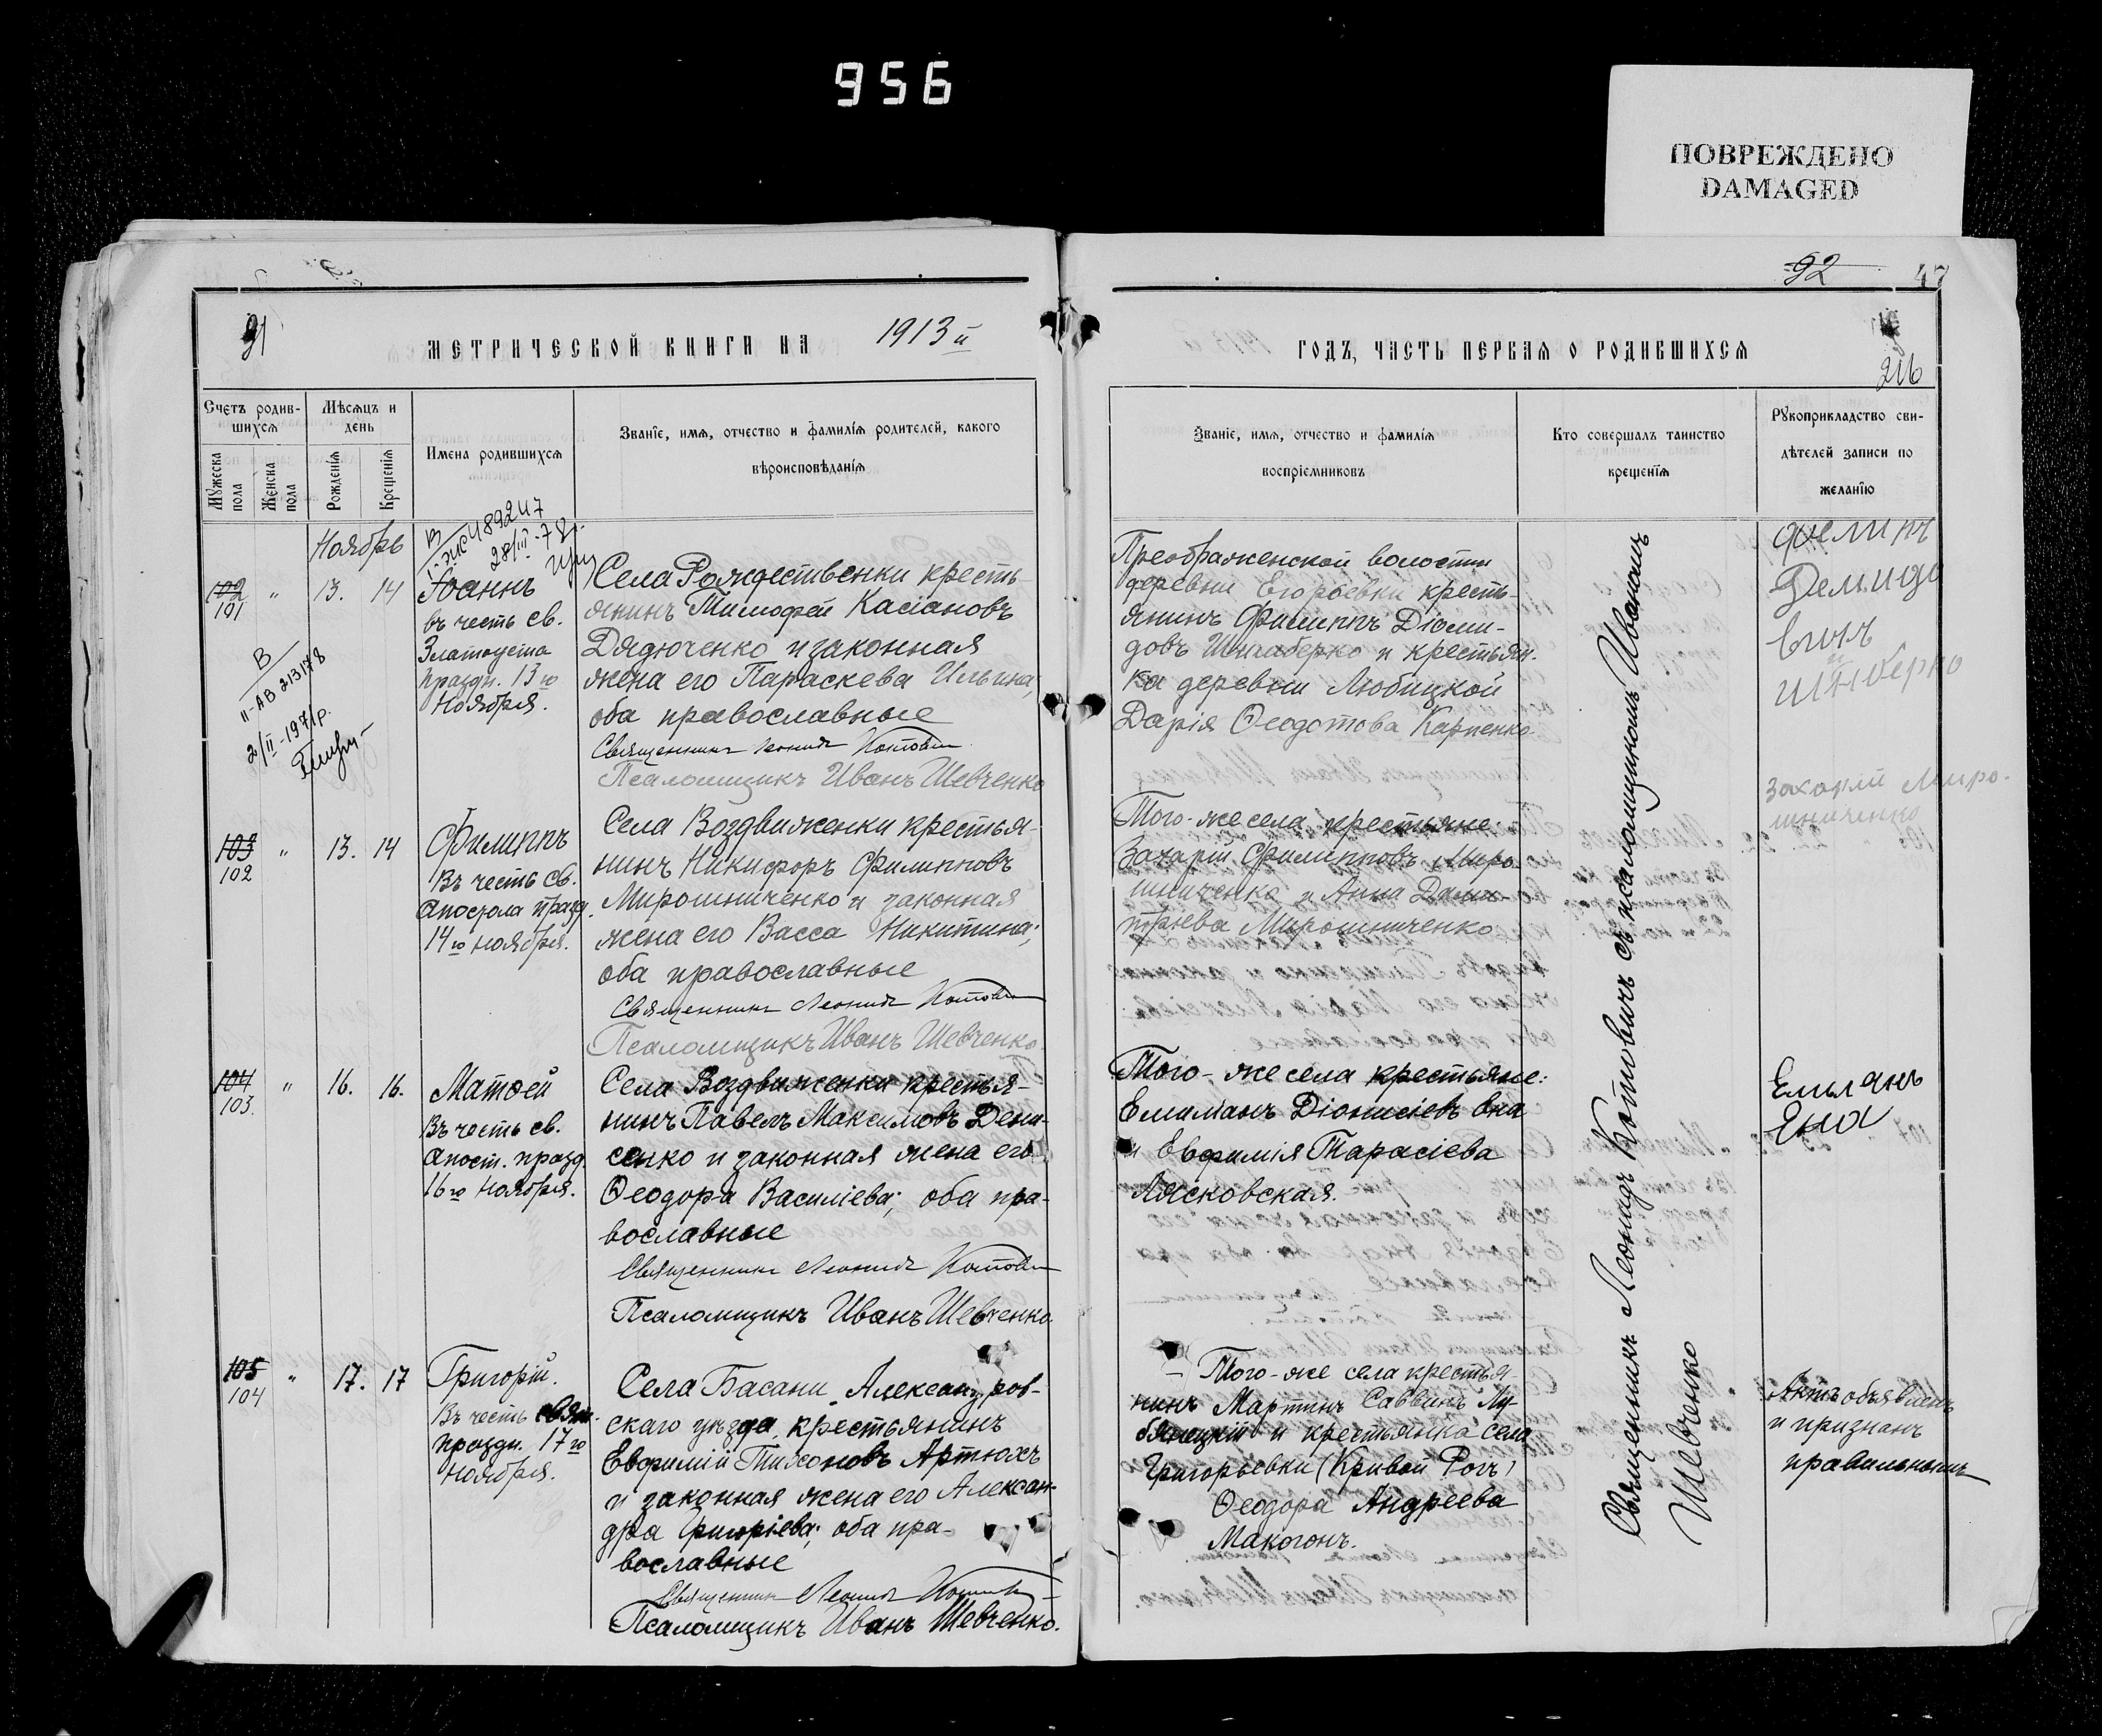 956
ПОВРЕЖДЕНО
DAMAGED
92
47
91
МЕТРИЧЕСКОЙ КНИГИ НА 1913й
ГОДЪ, ЧАСТЬ ПЕРВАЯ О РОДИВШИХСЯ
216
Счетъ родив-
шихся
Мужеска пола
Женска пола
Мѣсяцъ и
день
Рожденія
Крещенія
Имена родившихся
Званіе, имя, отчество и фамилія родителей, какого
вѣроисповѣданія
Званіе, имя, отчество и фамилія
воспріемниковъ
Кто совершалъ таинство
крещенія
Рукоприкладство сви-
дѣтелей записи по
желанію
Ноябрь
В
489247
28/III-78г.
102
101
"
13. 14
Іоаннъ
въ честь св.
Златоуста
праздн. 13го
Ноября.
В
II-АВ 213178
2/II-1971р.
Села Рождественки кресть-
янинъ Тимофей Касіановъ
Дядюченко и законная
жена его Параскева Ильина,
оба православные
Священникъ Леонидъ Котович
Псаломщикъ Иванъ Шевченко
Преображенской волости
деревни Егорьевки кресть-
янинъ Филиппъ Діоми-
довъ и крестьян-
ка деревни Любицкой
Дарія Ѳеодотова Карпенко
Филип
Демидо
вич
103
102
"
13. 14
Филиппъ
Въ честь св.
Апостола празд.
14го ноября.
Села Воздвиженки крестья-
нинъ Никифоръ Филипповъ
Мирошниченко и законная
жена его Васса Никитина;
оба православные
Священникъ Леонидъ Котович
Псаломщикъ Иванъ Шевченко.
Того-же села крестьяне:
Захарій Филипповъ Миро-
шниченко и Анна Дими-
тріева Мирошниченко
Захарий Миро-
шниченко
104
103.
"
16. 16.
Матѳей
Въ честь св.
Апост. празд.
16го Ноября.
Села Воздвиженки крестья-
нинъ Павелъ Максимовъ Дени-
сенко и законная жена его
Ѳеодора Василіева; оба пра-
вославные
Священникъ Леонидъ Котович
Псаломщикъ Иванъ Шевченко
Того-же села крестьяне:
Емиліанъ Діонисіевъ Ена
и Евфимія Тарасіева
Лясковская.
Емилянъ
Ена
105
104
"
17. 17
Григорій.
Въ честь свят.
праздн. 17го
ноября.
Села Басани Александров-
скаго уѣзда, крестьянинъ
Евфимій Тихоновъ Артюхъ
и законная жена его Алексан-
дра Григоріева; оба пра-
вославные
Священникъ Леонидъ Котович
Псаломщикъ Иванъ Шевченко.
Того-же села крестья-
нинъ Мартинъ Саввинъ
и крестьянка села
Григорьевки (Кривой Рогъ)
Ѳеодора Андреева
Макогонъ.
Актъ объявленъ
и признанъ
правильнымъ
Священникъ Леонидъ Котовичъ съ псаломщикомъ Иваномъ
Шевченко